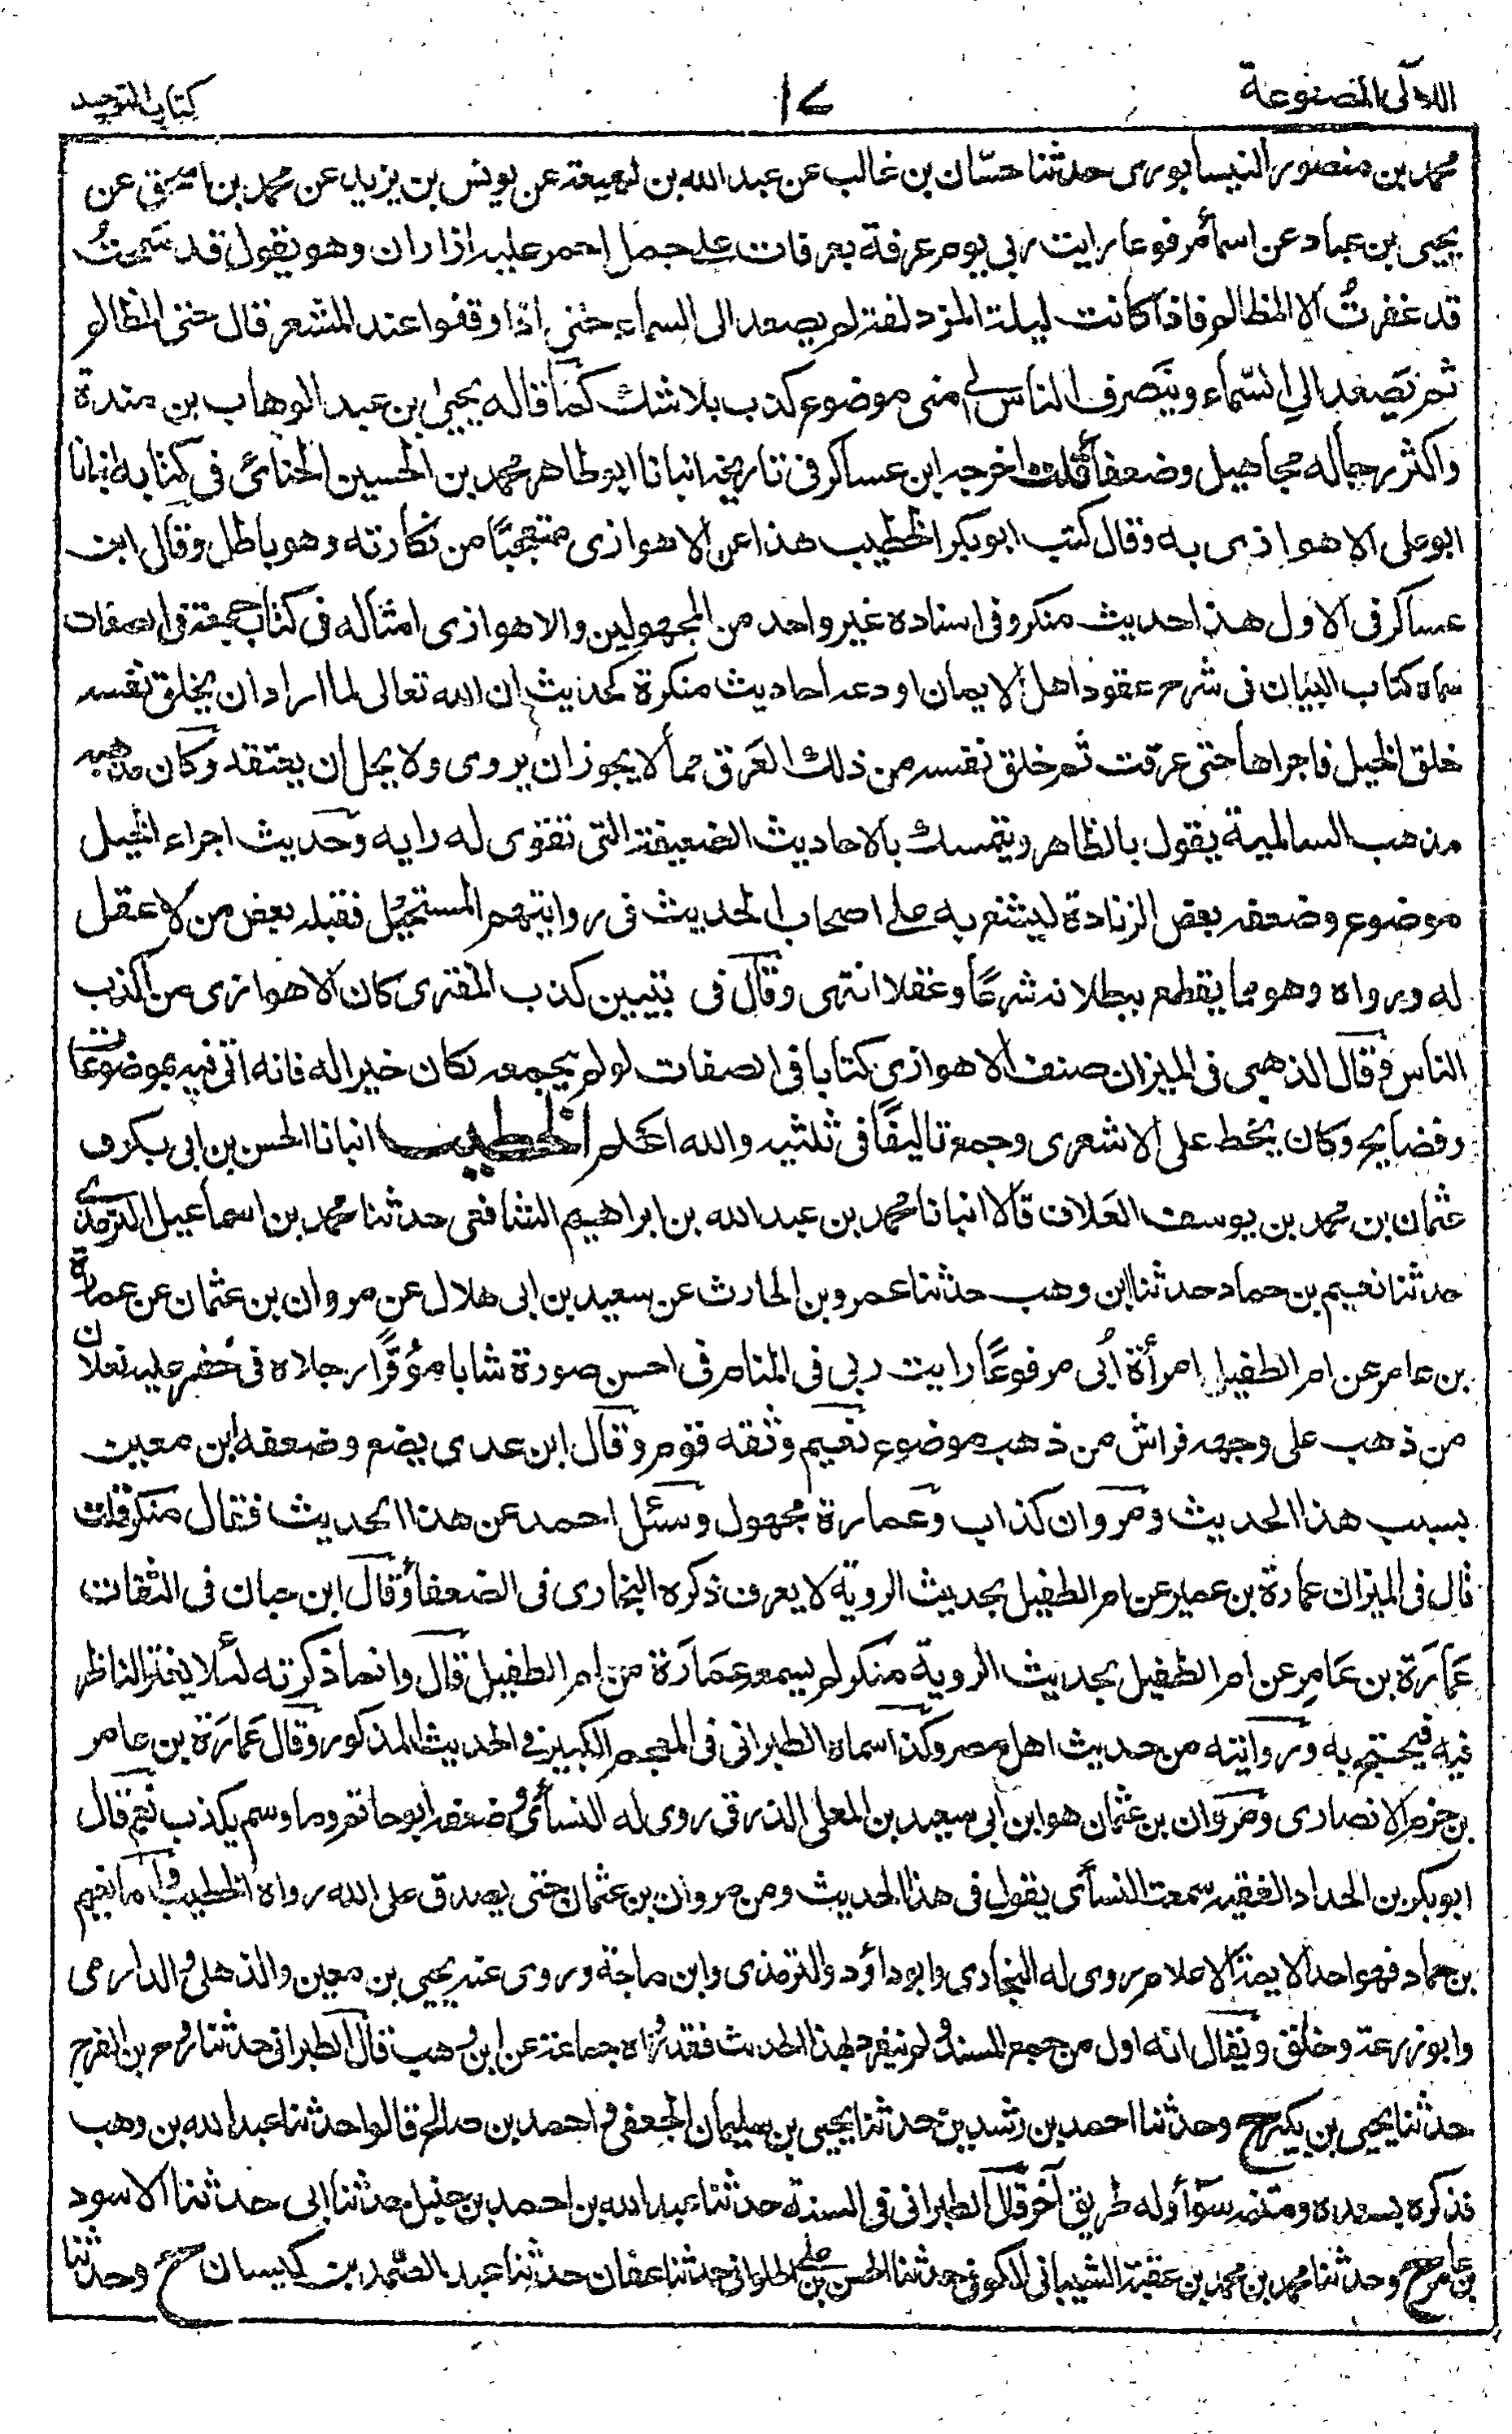 اللآلی المصنوعة
١٧
كتاب التوحيد
محمد بن منصور النيسابوری حدثنا حسّان بن غالب عن عبد الله بن لهيعة عن يونس بن يزيد عن محمد بن اسحق عن
يحيی بن عباد عن اسمآء مرفوعا رايت ربی يوم عرفة بعرفات علے جمل احمر عليه ازاران وهو يقول قد سمحتُ
قد غفرتُ الا المظالم فاذا كانت ليلة المزدلفة لم يصعد الی السماء حتی اذا وقفوا عند المشعر قال حتی المظالم
ثم يَصعد الی السّماء وينصرف الناس لے منی موضوع كذب بلا شك كما قاله يحيیٰ بن عبد الوهاب بن مندة
واكثر رجاله مجاهيل وضعفآء قلت اخرجه ابن عساكر فی تاريخه انبانا ابو طاهر محمد بن الحسين الحنائی فی كتابه انبانا
ابو علی الاهوازی به وقال كتب ابو بكر الخطيب هذا عن الاهوازی متعجبًا من نكارته وهو باطل وقال ابن
عساكر فی الاول هذا حديث منكر وفی اسناده غير واحد من المجهولين والاهوازی امثاله فی كتاب جمعه فی الصفات
سماه كتاب البيان فی شرح عقود اهل الايمان اودعه احاديث منكرة كحديث ان الله تعالی لما اراد ان يخلق نفسه
خلق الخيل فاجراها حتی عرقت ثم خلق نفسه من ذلك العَرق مما لا يجوز ان يروی ولا يحل ان يعتقد وكان مذهبه
مذهب السالمية يقول بالظاهر ويتمسك بالاحاديث الضعيفة التی تقوی له رايه وحديث اجراء الخيل
موضوع وضعه بعض الزنادة ليشنع به علے اصحاب الحديث فی روايتهم المستحيل فقبله بعض من لا عقل
له ورواه وهو مما يقطع ببطلانه شرعًا وعقلا انتهی وقال فی تبيين كذب المفتری كان الاهوازی من اكذب
الناس وقال الذهبی فی الميزان صنف الاهوازی كتابا فی الصفات لو لم يجمعه لكان خيرا له فانه اتی فيه بموضوعات
وفضايح وكان يحط علی الاشعری وجمع تاليفًا فی ثلثيه والله اعلم الخطيب انبانا الحسن بن ابی بكر و
عثمان بن محمد بن يوسف العَلاف قالا انبانا محمد بن عبد الله بن ابراهيم الشافعی حدثنا محمد بن اسماعيل الترمذی
حدثنا نعيم بن حماد حدثنا ابن وهب حدثنا عمرو بن الحارث عن سعيد بن ابی هلال عن مروان بن عثمان عن عمارة
بن عامر عن ام الطفيل امرأة اُبی مرفوعًا رايت ربی فی المنام فی احسن صورة شابا موقّرًا رجلاه فی خُضر عليه نعلان
من ذهب علی وجهه فراش من ذهب موضوع نعيم وثقه قوم وقال ابن عدی يضع وضعفه ابن معين
بسبب هذا الحديث ومروان كذاب وعمارة مجهول وسئل احمد عن هذا الحديث فقال منكر قلت
قال فی الميزان عمارة بن عمير عن ام الطفيل بحديث الروية لا يعرف ذكره البخاری فی الضعفآء وقال ابن حبان فی الثقات
عَمارَة بن عَامِر عن ام الطفيل بحديث الروية منكر لم يسمع عمَارَة من ام الطفيل قال وانما ذكرته لئلا يغتر الناظر
فيه فيحتج به وروايته من حديث اهل مصر وكذا سماه الطبرانی فی المعجم الكبير فی الحديث المذكور وقال عَمارَة بن عامر
بن حزم الانصاری ومروان بن عثمان هو ابن ابی سعيد بن المعلی الذرقی روی له النسائی وضعفه ابو حاتم وما وسم بكذب نعم قال
ابو بكر بن الحداد الفقيه سمعت النسائی يقول فی هذا الحديث ومن مروان بن عثمان حتی يصدق علی الله رواه الخطيب واما نعيم
بن حماد فهو احد الايمة الاعلام روی له البخاری وابو داؤد والترمذی وابن ماجة وروی عنه يحيی بن معين والذهلی والدارمی
وابو زرعة وخلق ويقال انه اول من جمع المسند ولم ينفرد بهذا الحديث فقد رواه جماعة عن ابن وهب قال الطبرانی حدثنا روح بن الفرج
حدثنا يحيی بن بكير ح وحدثنا احمد بن رشدين حدثنا يحيی بن سليمان الجعفی و احمد بن صالح قالوا حدثنا عبد الله بن وهب
فذكره بسنده ومتنه سوآء وله طريق آخر قال الطبرانی فی السنة حدثنا عبد الله بن احمد بن حنبل حدثنا ابی حدثنا الاسود
بن عامر ح وحدثنا محمد بن محمد بن عقبة الشيبانی الكوفی حدثنا الحسن بن علے الحلوانی حدثنا عفان حدثنا عبد الصّمد بن كيسان ح وحدثنا